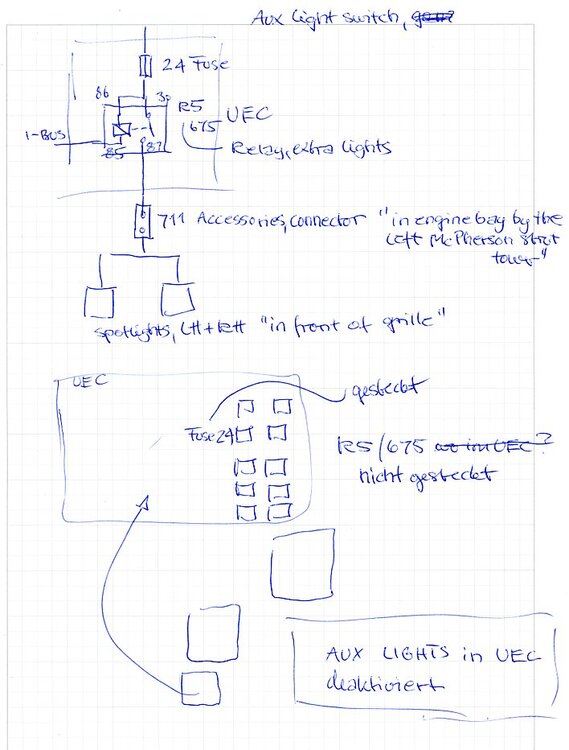 Aux Light switch,
24 Fuse
86
30
R5
675
UEC
I-BUS
85
87
Relay, extra lights
711 Accessories, connector "in engine bay by the
left McPherson strut
tower"
spotlights, LH+RH "in front of grille"
UEC
gesteckt
Fuse 24
R5/675 wo im UEC?
nicht gesteckt
AUX LIGHTS in UEC
deaktiviert